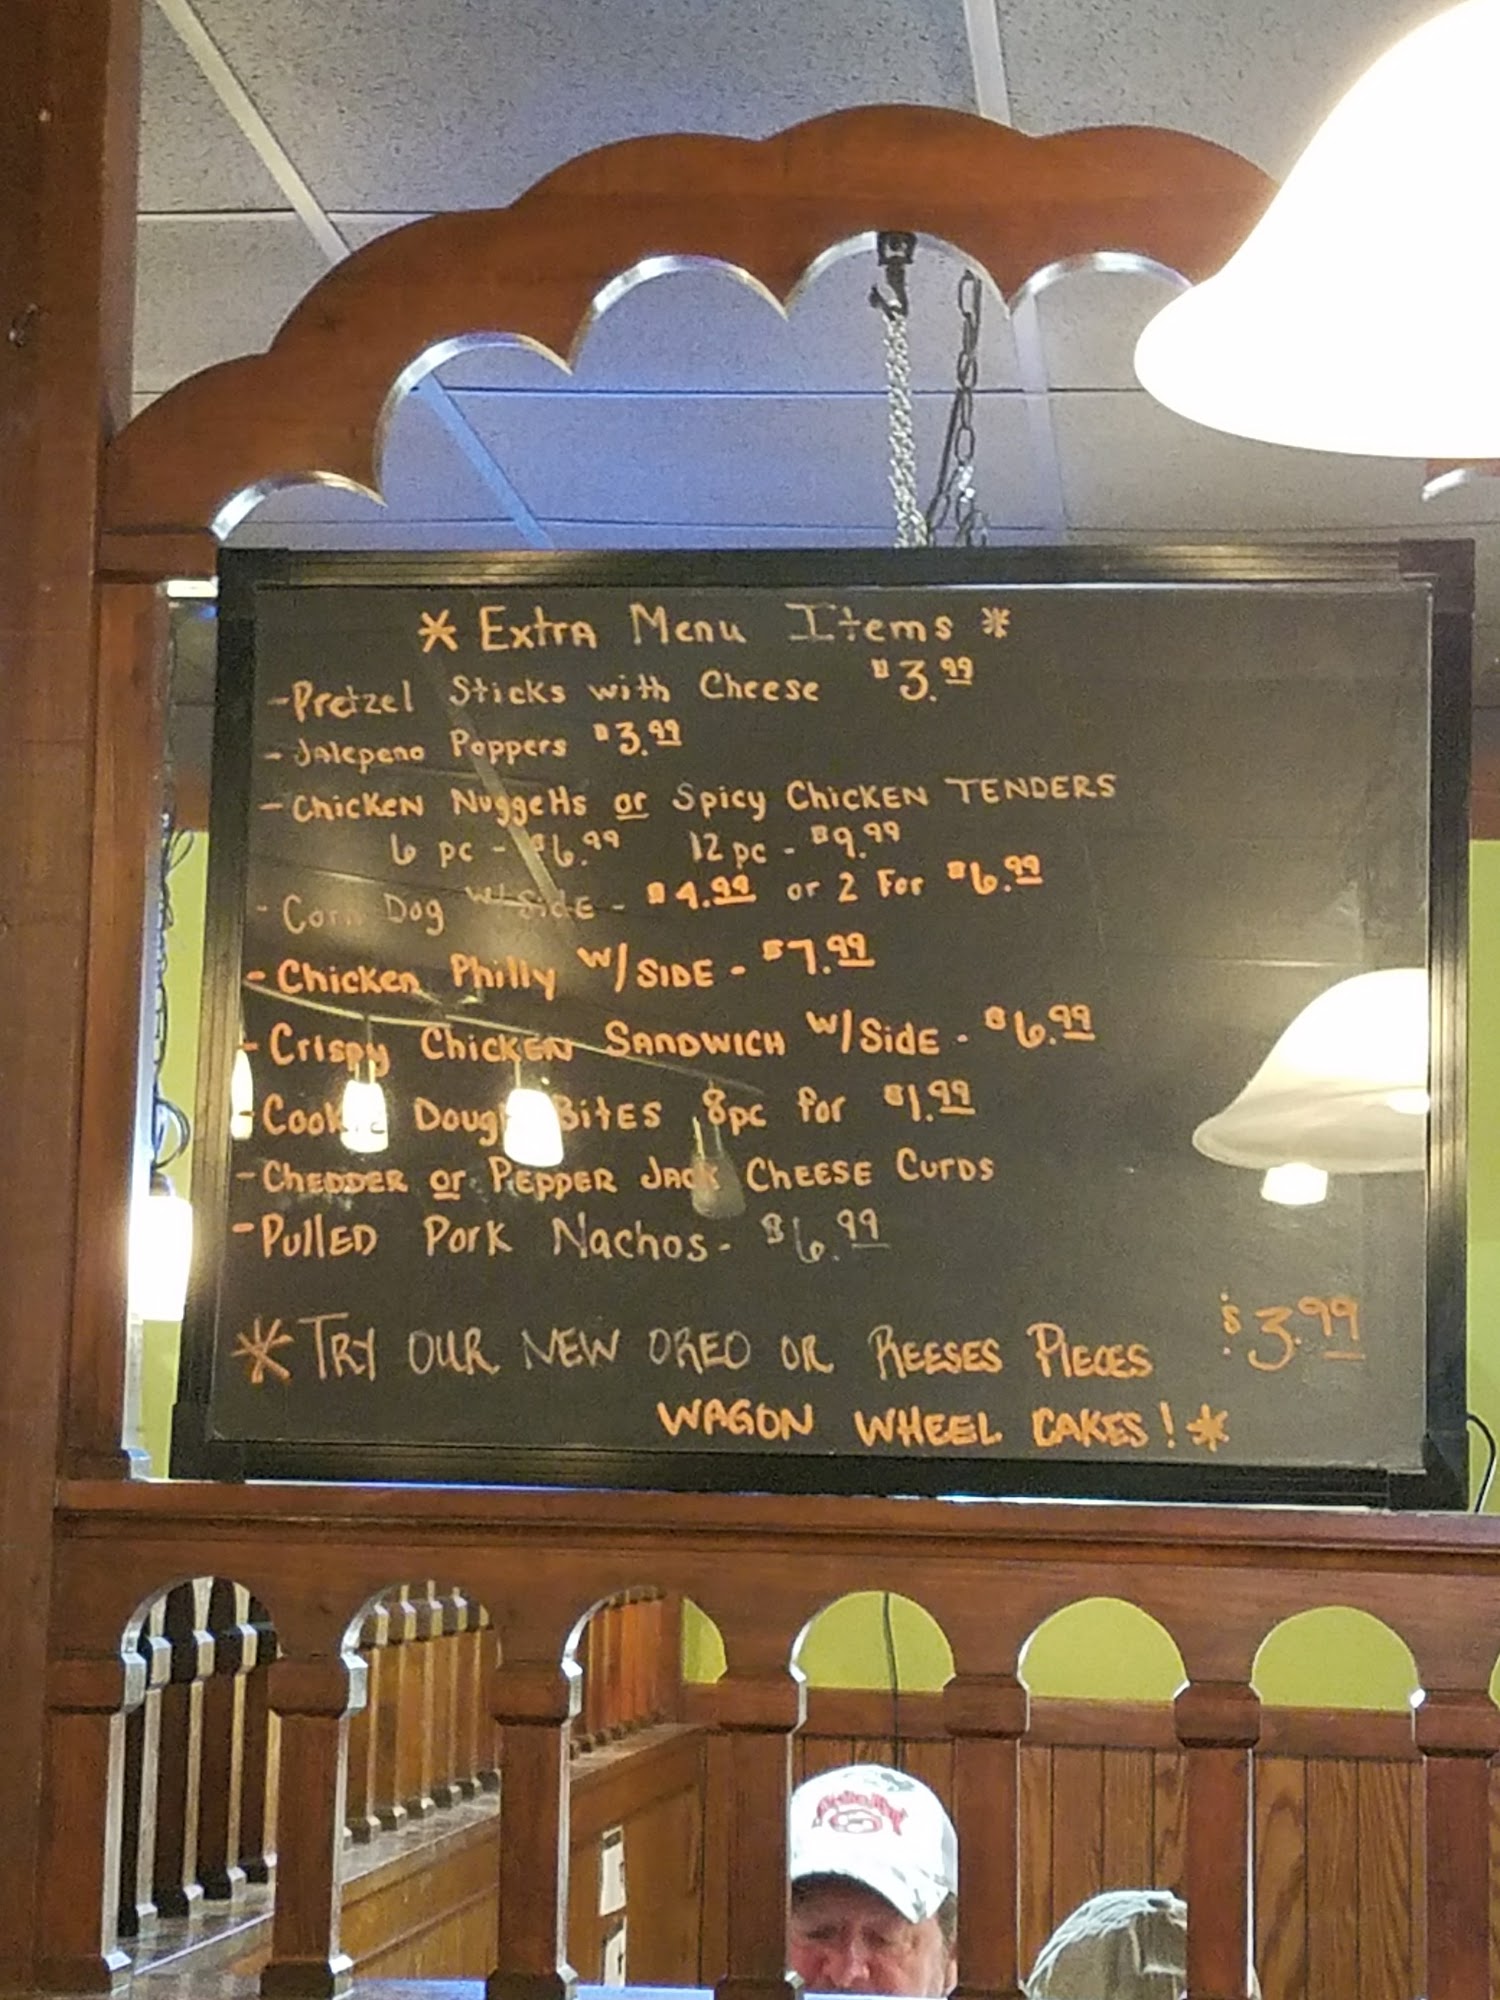 * Extra Menu Items *
- Pretzel Sticks with Cheese $3.99
- Jalepeno Poppers $3.99
- Chicken Nuggetts or Spicy Chicken TENDERS
6 pc - $6.99 12 pc - $9.99
- Corn Dog w/ Side - $4.99 or 2 For $6.99
- Chicken Philly w/ SIDE - $7.99
- Crispy Chicken SANDWICH w/ Side - $6.99
- Cookie Dough Bites 8pc for $1.99
- CHEDDER or PEPPER JACK CHEESE CURDS
- PULLED Pork Nachos - $6.99
* TRY OUR NEW OREO OR REESES PIECES $3.99
WAGON WHEEL CAKES! *